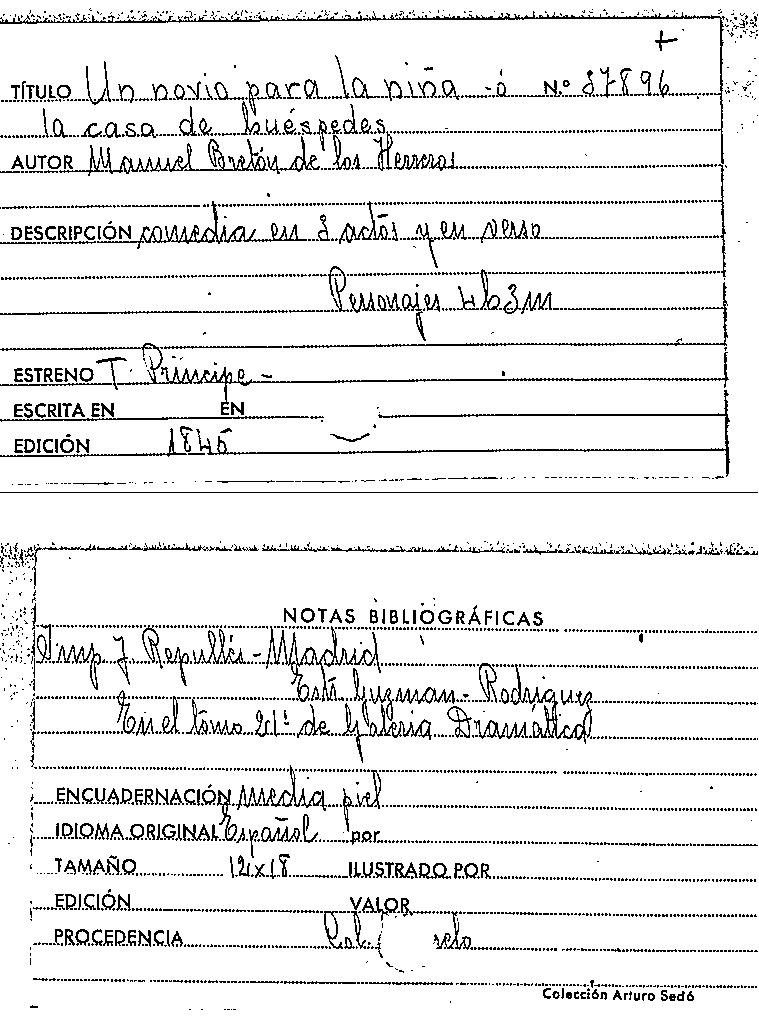 +
TÍTULO Un novio para la niña -ó N.º 37896
la casa de huéspedes
AUTOR Manuel Bretón de los Herreros
DESCRIPCIÓN comedia en 3 actos y en verso
Personajes 4h3m
ESTRENO T. Príncipe -
ESCRITA EN EN
EDICIÓN 1845
NOTAS BIBLIOGRÁFICAS
Imp J Repullés - Madrid
Guzman - Rodriguez
En el tomo de Galeria Dramática
ENCUADERNACIÓN media piel
IDIOMA ORIGINAL Español por
TAMAÑO 12x18 ILUSTRADO POR
EDICIÓN VALOR
PROCEDENCIA Col.
Colección Arturo Sedó